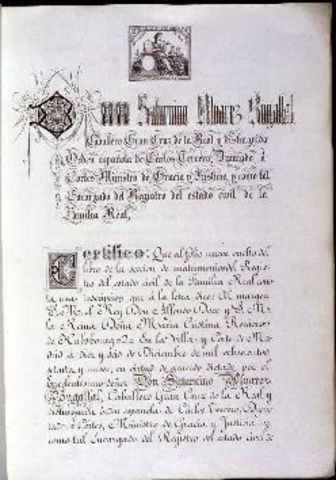 Don Saturnino Alvarez Bugallal,
Caballero Gran Cruz de la Real y distinguida
Orden española de Carlos Tercero, Diputado á
Cortes Ministro de Gracia y Justicia, y como tal
Encargado del Registro del estado civil de la
Familia Real,
Certifico: Que al folio nueve vuelto del
libro de la seccion de matrimonios del Regis-
tro del estado civil de la Familia Real cons-
ta una inscripcion que á la letra dice: Al margen
S. M. el Rey Don Alfonso Doce y S. M.
la Reina Doña Maria Cristina
de Habsbourg En la Villa y Corte de Ma-
drid á diez y seis de Diciembre de mil ochocientos
setenta y nueve, en virtud de acuerdo dictado por el
Excelentísimo señor Don Saturnino Alvarez
Bugallal, Caballero Gran Cruz de la Real y
distinguida orden española de Carlos Tercero, Dipu-
tado á Cortes, Ministro de Gracia y Justicia y
como tal Encargado del Registro del estado civil de